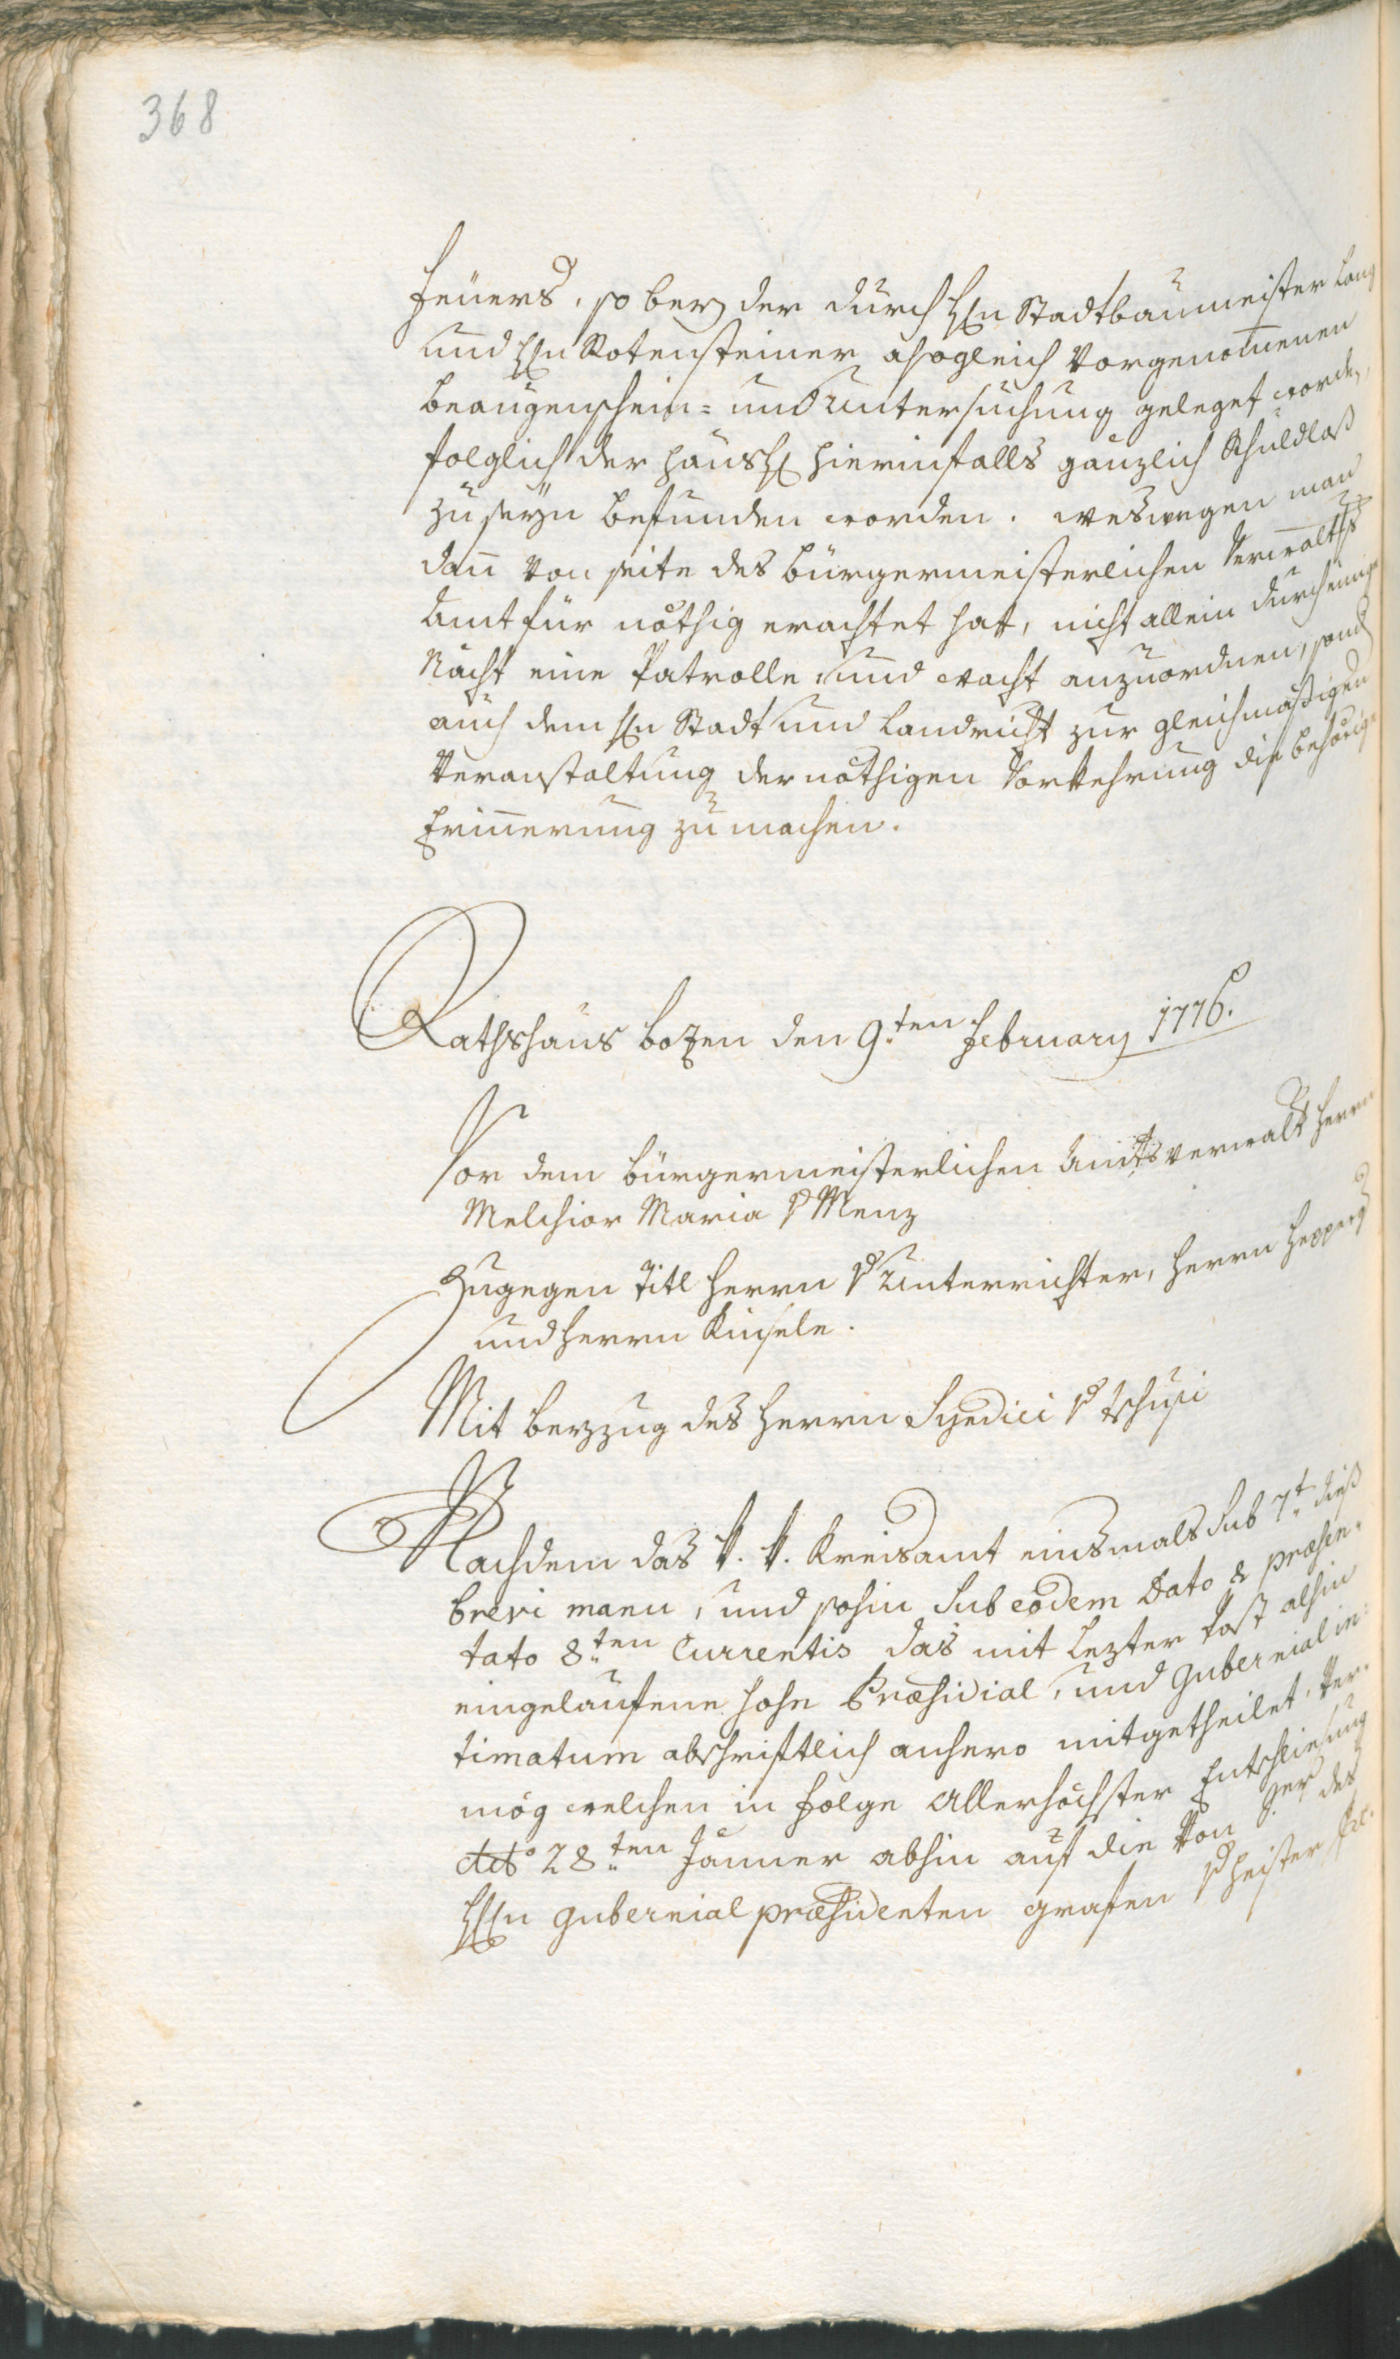 368
Feuers, so bey der durch H. Stadtbaumeister Lang
und H. Rotensteiner alsogleich vorgenom̄enen
Beaugenschein- und Untersuchung geleget worden,
folglich der Hausher hierinfalls gänzlich Schuldlos
zu seyn befunden worden. weswegen man
dan̄ von seite des Bürgermeisterlichen Verwalts
Amt für nöthig erachtet hat, nicht allein durch einige
Nächt eine Patrolle, und wacht anzuordnen, sond
auch dem H. Stadt und Landricht zur gleichmäßigen
Veranstaltung der nöthigen Vorkehrung die behörige
Erin̄erung zu machen.
Rathshaus Bozen den 9.ten February 1776.
Vor dem Bürgermeisterlichen Amtsverwalt Herrn
Melchior Maria v Menz
Zugegen Titl Herrn v Unterrichter, Herrn Hepperg
und Herrn Kinsele.
Mit Beyzug des Herrn Syndici v Tschusi
Nachdem das k. k. Kreisamt einsmals sub 7.t dieß
brevi manu, und sohin sub eodem Dato & præsen-
tato 8.ten Currentis das mit lezter Post alhin
eingelaufene hohe Præsidial, und Gubernial in-
timatum abschriftlich anhero mitgetheilet, Ver-
mög welchen in Folge Allerhöchster Entschliesung
dto 28.ten Jänner abhin auf die von Sr des
H. Gubernial præsidenten Grafen v Heister